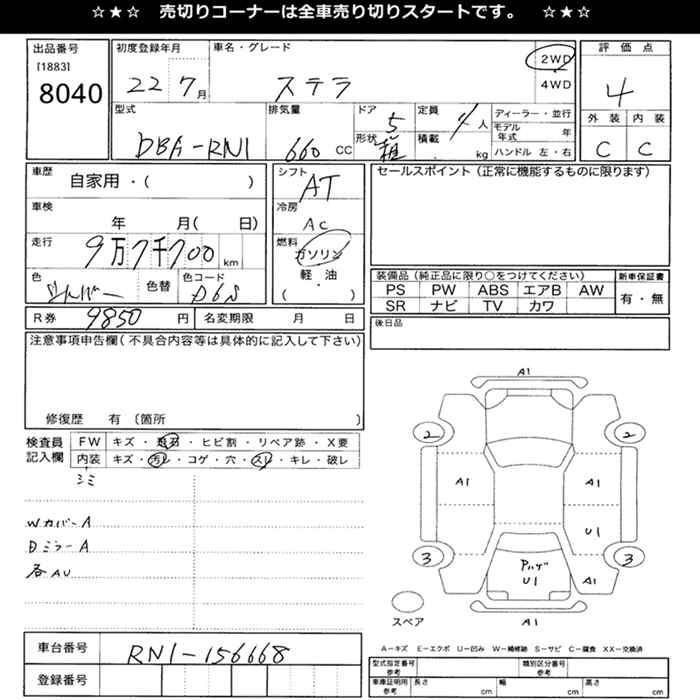 ☆★☆ 売切りコーナーは全車売り切りスタートです。 ☆★☆
出品番号
[1883]
8040
初度登録年月
22 7月
車名・グレード
ステラ
2WD
4WD
評価点
4
外装 内装
C C
型式
DBA-RN1
排気量
660 CC
ドア 5
形状 箱
定員 4人
積載 kg
ディーラー・並行
モデル年式 年
ハンドル 左・右
車歴
自家用・( )
車検
年 月( 日)
走行
9万7千700 km
色
シルバー
色替
色コード
D6S
シフト
AT
冷房
AC
燃料
ガソリン
軽・油
( )
セールスポイント(正常に機能するものに限ります)
装備品(純正品に限り○をつけてください)
PS PW ABS エアB AW
SR ナビ TV カワ
新車保証書
有・無
R券 9850 円
名変期限 月 日
後日品
注意事項申告欄(不具合内容等は具体的に記入して下さい)
修復歴 有 〔箇所 〕
検査員記入欄
FW キズ・飛石・ヒビ割・リペア跡・X要
内装 キズ・汚レ・コゲ・穴・スレ・キレ・破レ
シミ
WカバーA
DミラーA
各AU
A1
2 2
A1 A1
U1
3 3
Pハゲ
U1
A1
A1
スペア
A−キズ E−エクボ U−凹み W−補修跡 S−サビ C−腐食 XX−交換済
車台番号 RN1-156668
登録番号
型式指定番号 参考
類別区分番号 参考
車庫証明用 参考
長さ cm
幅 cm
高さ cm